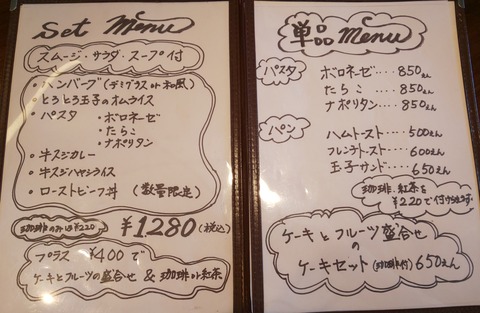 Set Menu
スムージ・サラダ・スープ付
・ハンバーグ(デミグラス or 和風)
・とろとろ玉子のオムライス
・パスタ ・ボロネーゼ
・たらこ
・ナポリタン
・牛スジカレー
・牛スジハヤシライス
・ローストビーフ丼 (数量限定)
珈琲のみは¥220
¥1280(税込)
プラス ¥400で
ケーキとフルーツの盛合せ & 珈琲or紅茶
単品 Menu
パスタ
ボロネーゼ・・・・850えん
たらこ・・・・850えん
ナポリタン・・・・850えん
パン
ハムトースト・・・・500えん
フレンチトースト・・・・600えん
玉子サンド・・・・650えん
珈琲・紅茶を
¥220で付けられます
ケーキとフルーツ盛合せの
ケーキセット(珈琲付)650えん